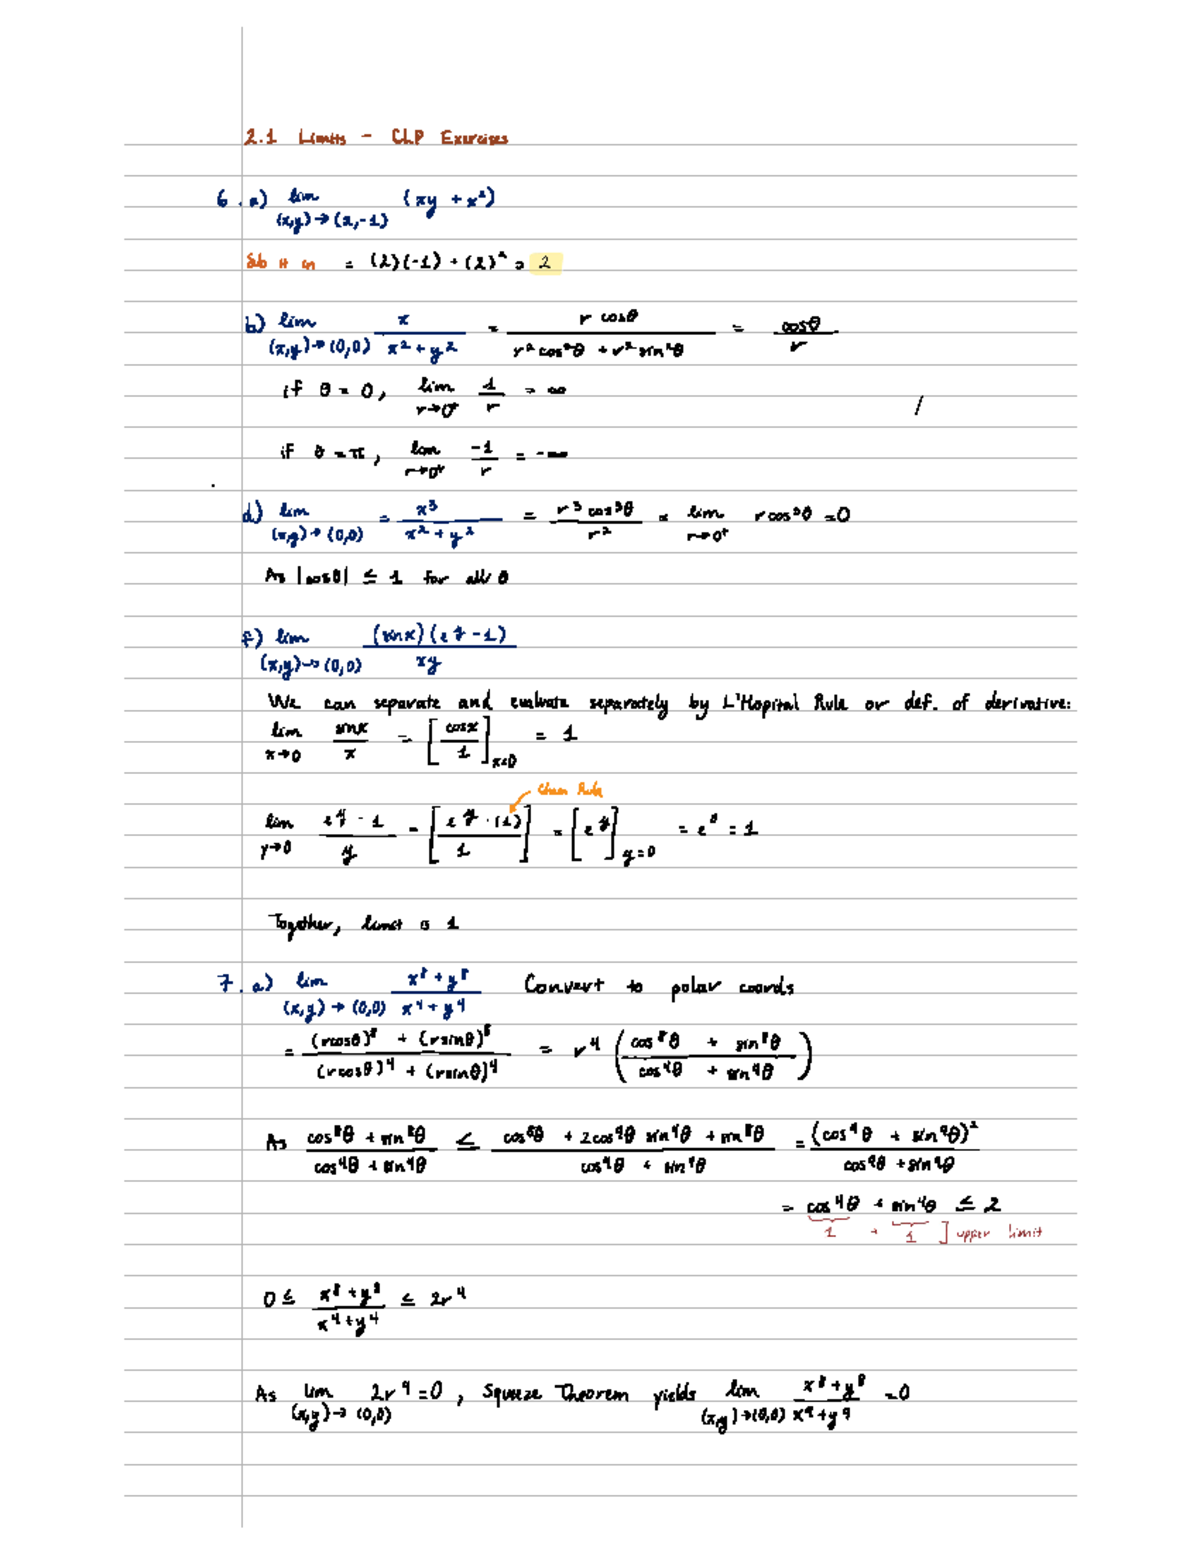 2.1 Limits - CLP Exercises
6. a) lim (x,y)→(2,-1) (xy + x²)
Sub it in = (2)(-1) + (2)² = 2
b) lim (x,y)→(0,0) x / (x² + y²) = r cosθ / (r² cos²θ + r² sin²θ) = cosθ / r
if θ = 0, lim r→0⁺ 1/r = ∞
if θ = π, lim r→0⁺ -1/r = -∞
d) lim (x,y)→(0,0) = x³ / (x² + y²) = r³ cos³θ / r² = lim r→0⁺ r cos³θ = 0
As |cosθ| ≤ 1 for all θ
f) lim (x,y)→(0,0) (sin x)(e^y - 1) / xy
We can separate and evaluate separately by L'Hopital Rule or def. of derivative:
lim x→0 sin x / x = [cos x / 1] x=0 = 1
Chain Rule
lim y→0 (e^y - 1) / y = [e^y · (1) / 1] = [e^y] y=0 = e⁰ = 1
Together, limit is 1
7. a) lim (x,y)→(0,0) (x⁸ + y⁸) / (x⁴ + y⁴) Convert to polar coords
= ((r cosθ)⁸ + (r sinθ)⁸) / ((r cosθ)⁴ + (r sinθ)⁴) = r⁴ ((cos⁸θ + sin⁸θ) / (cos⁴θ + sin⁴θ))
As (cos⁸θ + sin⁸θ) / (cos⁴θ + sin⁴θ) ≤ (cos⁸θ + 2cos⁴θ sin⁴θ + sin⁸θ) / (cos⁴θ + sin⁴θ) = (cos⁴θ + sin⁴θ)² / (cos⁴θ + sin⁴θ)
= cos⁴θ + sin⁴θ ≤ 2
1 + 1 ] upper limit
0 ≤ (x⁸ + y⁸) / (x⁴ + y⁴) ≤ 2r⁴
As lim (x,y)→(0,0) 2r⁴ = 0, Squeeze Theorem yields lim (x,y)→(0,0) (x⁸ + y⁸) / (x⁴ + y⁴) = 0